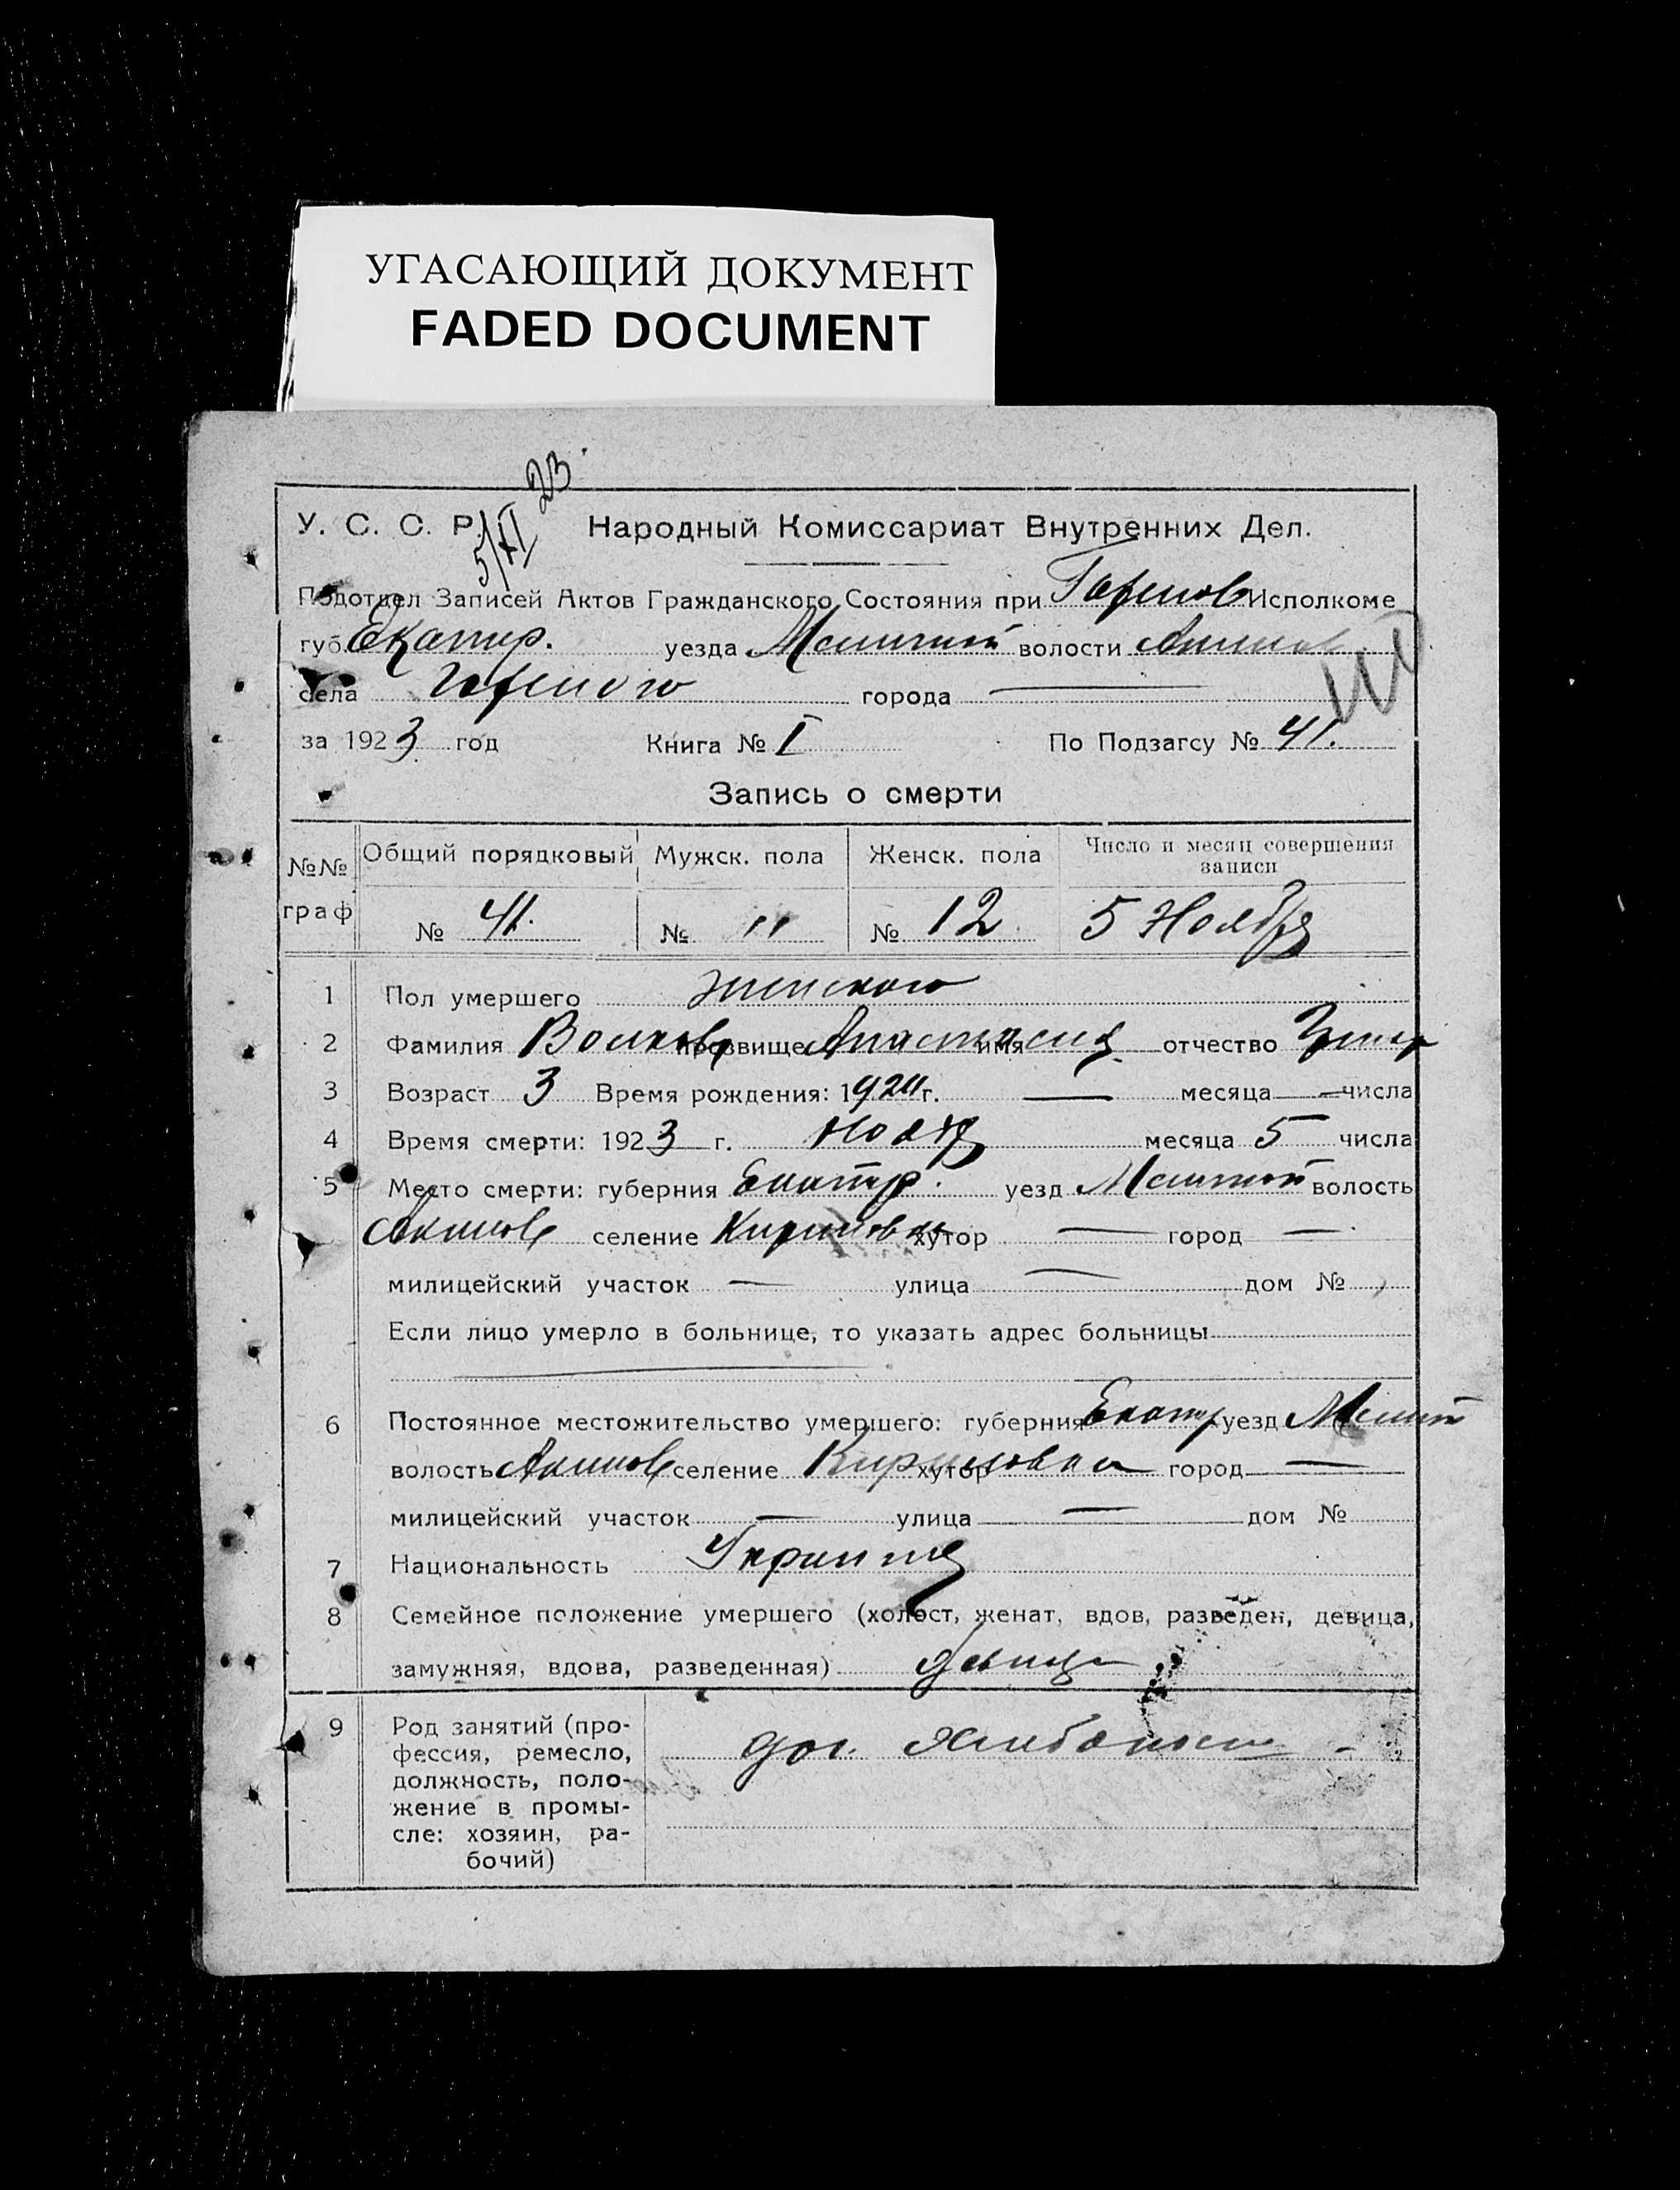 УГАСАЮЩИЙ ДОКУМЕНТ
FADED DOCUMENT
5/XI 23
У. С. С. Р. Народный Комиссариат Внутренних Дел.
Подотдел Записей Актов Гражданского Состояния при Исполкоме
губ. Екатер. уезда волости
села города —
за 1923 год Книга № I По Подзагсу № 41.
Запись о смерти
№№ граф Общий порядковый Мужск. пола Женск. пола Число и месяц совершения записи
№ 41. № " № 12 5 Ноября
1 Пол умершего женского
2 Фамилия Волкова прозвище Анастасия имя отчество
3 Возраст 3 Время рождения: 1920 г. — месяца — числа
4 Время смерти: 1923 г. месяца 5 числа
5 Место смерти: губерния Екатер. уезд волость
Акимов селение Кириловка хутор — город —
милицейский участок — улица — дом №
Если лицо умерло в больнице, то указать адрес больницы
6 Постоянное местожительство умершего: губерния Екатер уезд Мелит
волость Акимов селение Кириловка хутор город —
милицейский участок — улица — дом №
7 Национальность
8 Семейное положение умершего (холост, женат, вдов, разведен, девица,
замужняя, вдова, разведенная) девица
9 Род занятий (про-
фессия, ремесло,
должность, поло-
жение в промы-
сле: хозяин, ра-
бочий)